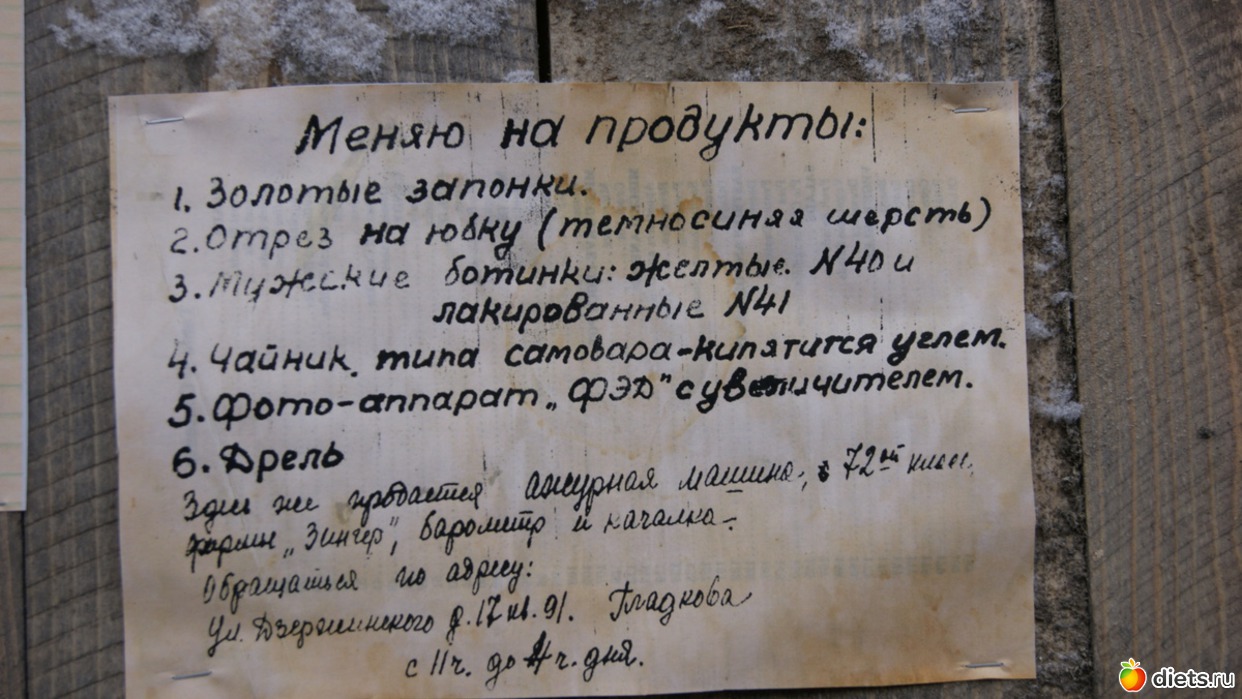 Меняю на продукты:
1. Золотые запонки.
2. Отрез на юбку (темносиняя шерсть)
3. Мужские ботинки: желтые. N40 и
лакированные N41
4. Чайник, типа самовара-кипятится углем.
5. Фото-аппарат „ФЭД" с увеличителем.
6. Дрель
Здесь же продается ажурная машина, 72ой класс,
фирмы „Зингер", барометр и качалка.
Обращаться по адресу:
Ул. Дзержинского д. 17 кв. 91. Гладкова
с 11 ч. до 4 ч. дня.
diets.ru